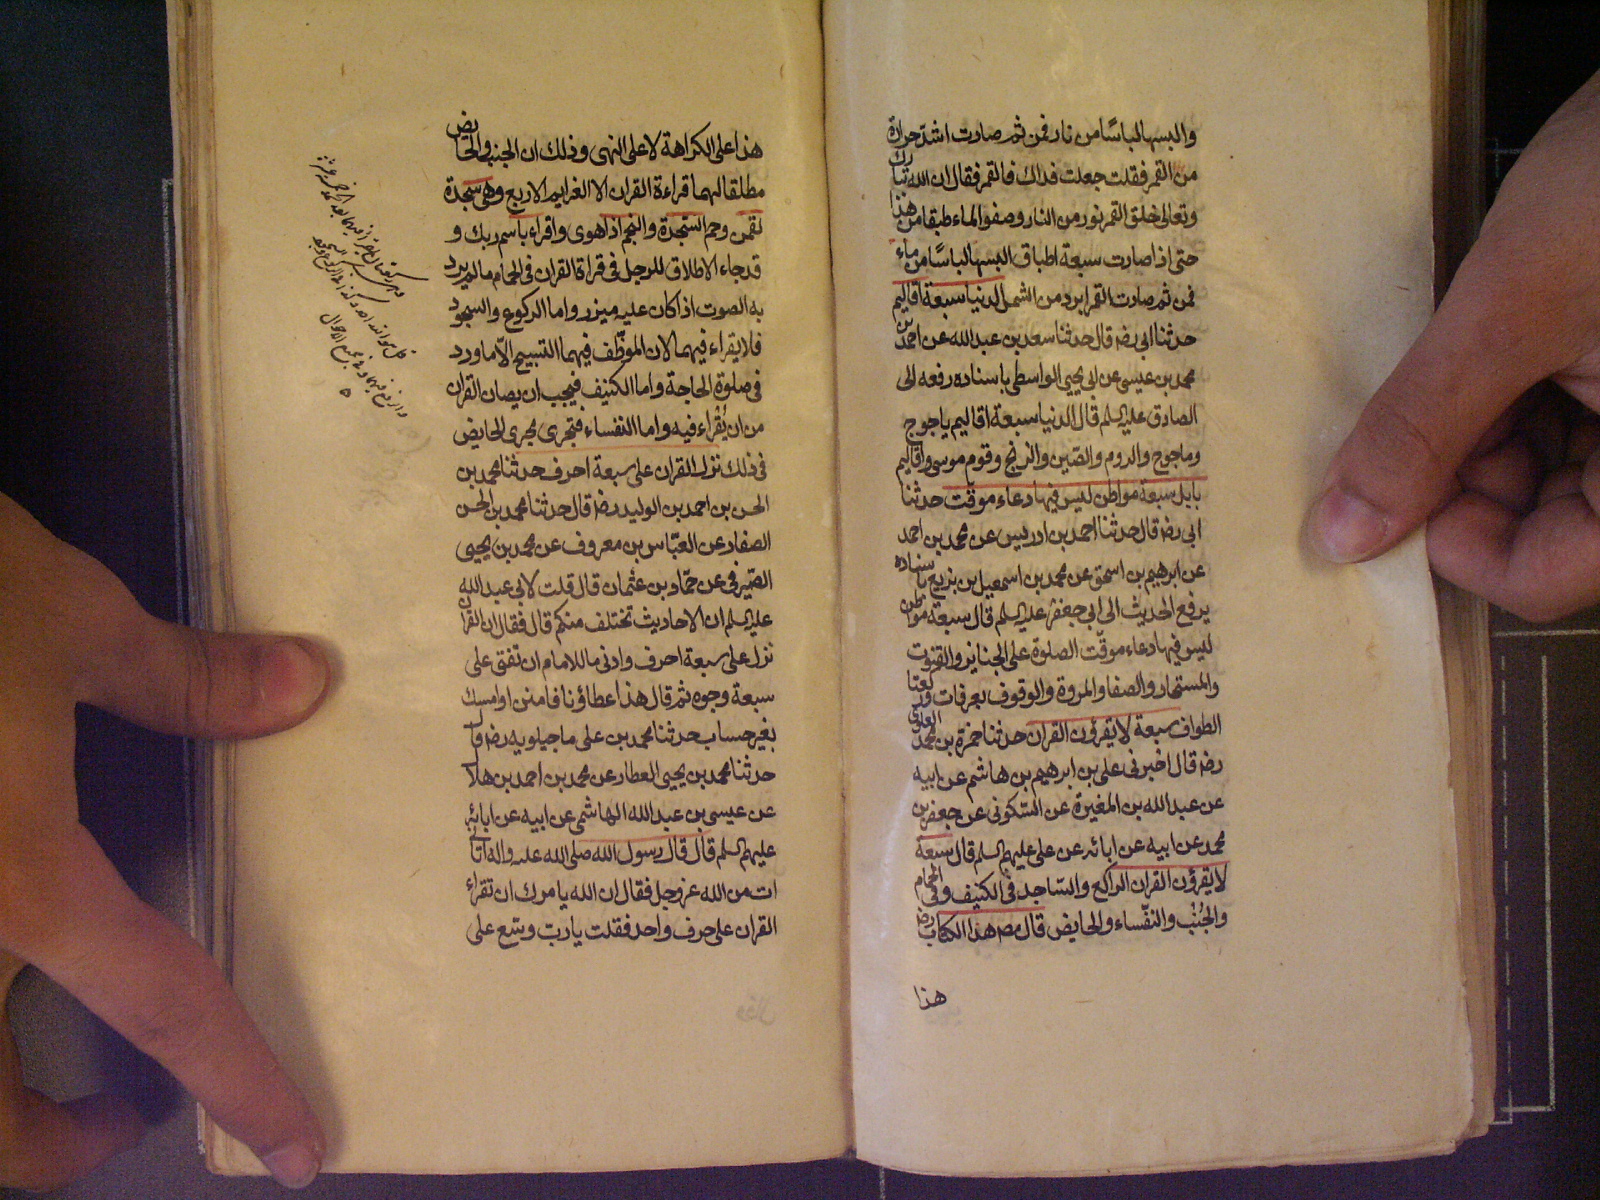 والبسها لباسًا من نار فمن ثم صارت اشدّ حرارة
من القمر فقلت جعلت فداك فالقمر فقال ان الله تبارك
وتعالى خلق القمر نور من النار وصفو الماء طبقا من هذا
حتى اذا صارت سبعة اطباق البسها لباسًا من ماء
فمن ثم صارت القمر ابرد من الشمس الدنيا سبعة اقاليم
حدثنا ابى رضه قال حدثنا سعد بن عبد الله عن احمد بن
محمد بن عيسى عن ابى يحيى الواسطى باسناده رفعه الى
الصادق عليه السلم قال الدنيا سبعة اقاليم ياجوج
وماجوج والروم والصّين والزنج وقوم موسى واقاليم
بابل سبعة مواطن ليس فيها دعاء موقت حدثنا
ابى رضه قال حدثنا احمد بن ادريس عن محمد بن احمد
عن ابرهيم بن اسحق عن محمد بن اسمعيل بن بزيع باسناده
يرفع الحديث الى ابى جعفر عليه السلم قال سبعة مواطن
ليس فيها دعاء موقّت الصلوة على الجنايز والقنوت
والمستجار والصفا والمروة والوقوف بعرفات وركعتا
الطواف سبعة لا يقرؤن القران حدثنا حمزة بن محمد العلوى
رضه قال اخبرنى على بن ابرهيم بن هاشم عن ابيه
عن عبد الله بن المغيرة عن السّكونى عن جعفر بن
محمد عن ابيه عن ابائه عن على عليهم السلم قال سبعة
لا يقرؤن القران الراكع والسّاجد فى الكنيف وفى الحمام
والجُنُب والنفّساء والحايض قال مصنف هذا الكتاب رضه
هذا
هذا على الكراهة لا على النهى وذلك ان الجنب والحايض
مطلقا لهما قراءة القران الا الغرايم الاربع وهى سجدة
لقمن وحم السّجدة والنجم اذا هوى واقراء باسم ربك و
قد جاء الاطلاق للرجل فى قراة القران فى الحمام ما لم يرد
به الصوت اذا كان عليه ميزر واما الركوع والسجود
فلا يقراء فيهما لان الموظّف فيهما التسبيح الاّ ما ورد
فى صلوة الحاجة واما الكنيف فيجب ان يصان القران
من ان يُقْراء فيه واما النفساء فتجرى مجرى الحايض
فى ذلك نزل القران على سبعة احرف حدثنا محمد بن
الحسن بن احمد بن الوليد رضه قال حدثنا محمد بن الحسن
الصفار عن العبّاس بن معروف عن محمد بن يحيى
الصّيرفى عن حمّاد بن عثمان قال قلت لابى عبد الله
عليه السلم ان الاحاديث تختلف منكم قال فقال ان القران
نزل على سبعة احرف وادنى ما للامام ان تفتى على
سبعة وجوه ثم قال هذا عطاؤنا فامنن او امسك
بغير حساب حدثنا محمد بن على ماجيلويه رضه قال
حدثنا محمد بن يحيى العطار عن محمد بن احمد بن هلال
عن عيسى بن عبد الله الهاشمى عن ابيه عن ابائه
عليهم السلم قال قال رسول الله صلى الله عليه واله اتانى
ات من الله عز وجل فقال ان الله يامرك ان تقراء
القران على حرف واحد فقلت يا ربّ وسّع على